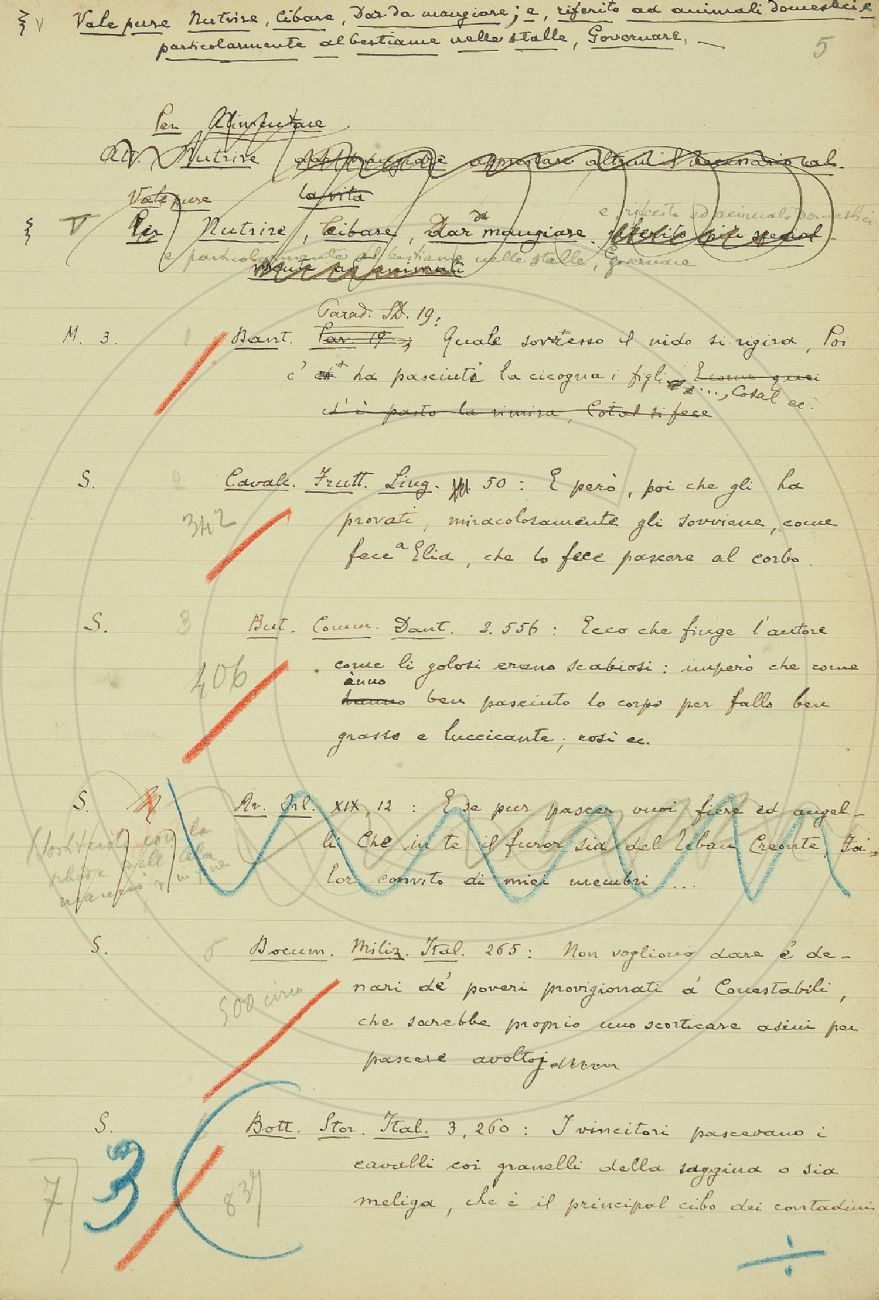 § V Vale pure Nutrire, Cibare, Dar da mangiare; e, riferito ad animali domestici e
particolarmente al bestiame nelle stalle, Governare. —
5
Per Alimentare
Nutrire apprestare altrui il necessario al
Vale pure la vita
§ V Per Nutrire, Cibare, Dar da mangiare.
e riferito ad animali domestici
e particolarmente al bestiame nelle stalle, Governare
mente ad animali
Parad. SD. 19:
M. 3. 1 Dant. Par. 19; Quale sovresso il nido si rigira, Poi
c' ha pasciuti la cicogna i figli E come quei
..., Cotal ec.
ch' è pasto la rimira, Cotal si fece
S. 2 Cavalc. Frutt. Ling. 50: E però, poi che gli ha
342 provati, miracolosamente gli sovviene, come
fece a Elia, che lo fece pascere al corbo.
S. 3 But. Comm. Dant. 2. 556: Ecco che finge l'autore
406 come li golosi erano scabiosi: imperò che come
ànno
hanno ben pasciuto lo corpo per fallo ben
grasso e luccicante, così ec.
S. Ar. Orl. XIX, 12: E se pur pascer vuoi fiere ed augel-
li Che in te il furor sia del Teban Creonte, Fai
lor convito di miei membri ...
S. 5 Docum. Miliz. Ital. 265: Non vogliono dare é de-
500 circa nari dé poveri provigionati á Conestabili,
che sarebbe proprio uno scorticare asini per
pascere avoltoj
S. Bott. Stor. Ital. 3, 260: I vincitori pascevano i
3 837 cavalli coi granelli della saggina o sia
7 meliga, che è il principal cibo dei contadini